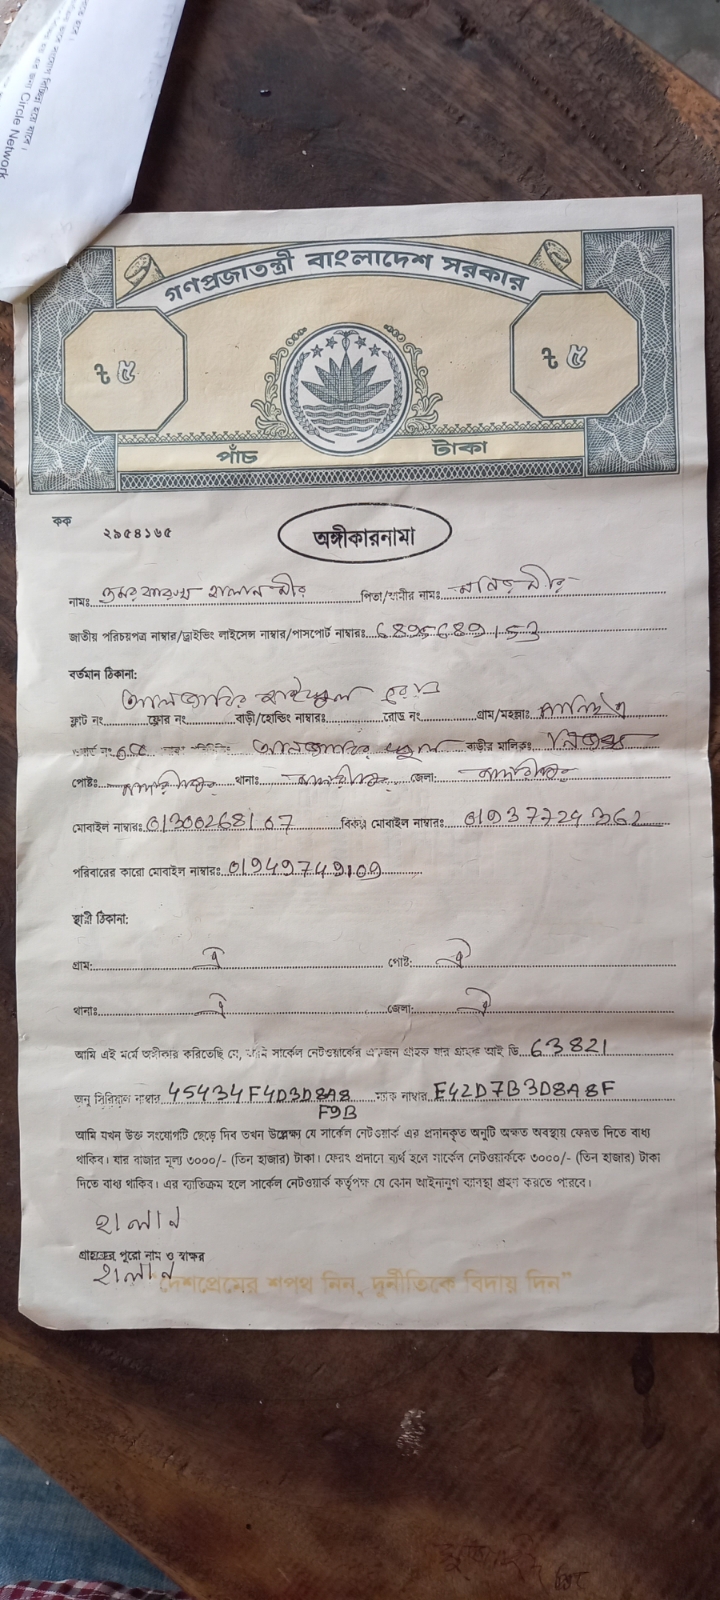 Circle Network
গণপ্রজাতন্ত্রী বাংলাদেশ সরকার
৳ ৫ ৳ ৫
পাঁচ টাকা
কক ২৯৫৪১৬৫
অঙ্গীকারনামা
নামঃ হালান মীর পিতা/স্বামীর নামঃ মনিজ মীর
জাতীয় পরিচয়পত্র নাম্বার/ড্রাইভিং লাইসেন্স নাম্বার/পাসপোর্ট নাম্বারঃ 6895689153
বর্তমান ঠিকানা:
ফ্লাট নং ফ্লোর নং বাড়ী/হোল্ডিং নাম্বারঃ রোড নং গ্রাম/মহল্লাঃ
বাড়ীর মালিকঃ নিজস্ব
পোষ্টঃ থানাঃ জেলা:
মোবাইল নাম্বারঃ 01300268107 বিকল্প মোবাইল নাম্বারঃ 01937724362
পরিবারের কারো মোবাইল নাম্বারঃ 01949749109
স্থায়ী ঠিকানা:
গ্রাম: ঐ পোষ্ট: ঐ
থানাঃ ঐ জেলা: ঐ
আমি এই মর্মে অঙ্গীকার করিতেছি যে, আমি সার্কেল নেটওয়ার্কের একজন গ্রাহক যার গ্রাহক আই ডি 63821
অনু সিরিয়াল নাম্বার 45434F4D3D8A8 ম্যাক নাম্বার E42D7B3D8A8F
F9B
আমি যখন উক্ত সংযোগটি ছেড়ে দিব তখন উল্লেখ্য যে সার্কেল নেটওয়ার্ক এর প্রদানকৃত অনুটি অক্ষত অবস্থায় ফেরত দিতে বাধ্য
থাকিব। যার বাজার মূল্য ৩০০০/- (তিন হাজার) টাকা। ফেরৎ প্রদানে ব্যর্থ হলে সার্কেল নেটওয়ার্ককে ৩০০০/- (তিন হাজার) টাকা
দিতে বাধ্য থাকিব। এর ব্যতিক্রম হলে সার্কেল নেটওয়ার্ক কর্তৃপক্ষ যে কোন আইনানুগ ব্যবস্থা গ্রহণ করতে পারবে।
হালান
গ্রাহকের পুরো নাম ও স্বাক্ষর
হালান
“দেশপ্রেমের শপথ নিন, দুর্নীতিকে বিদায় দিন”